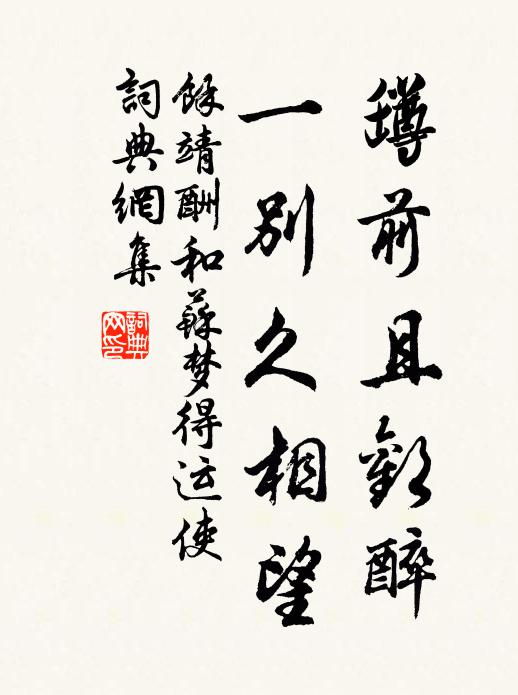 罇前且歡醉
一别久相望
餘靖酬和蘇梦得运使
詞典網集
詞典网印